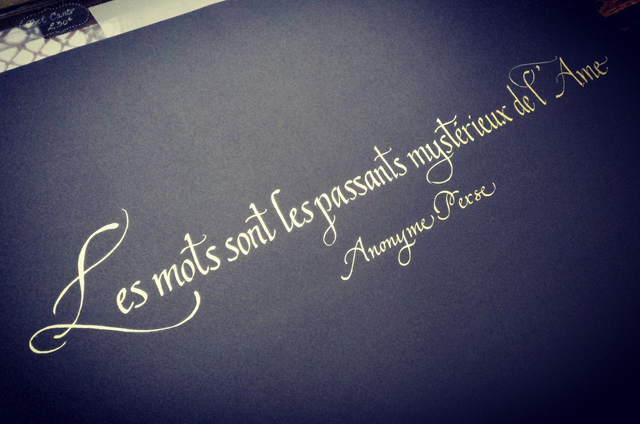 Les mots sont les passants mystérieux de l'Ame
Anonyme Perse